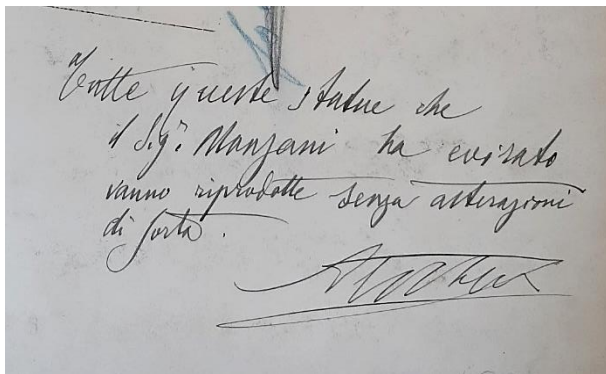 Tutte queste statue che
il Sigr. Manzani ha evirato
vanno riprodotte senza alterazioni
di sorta.